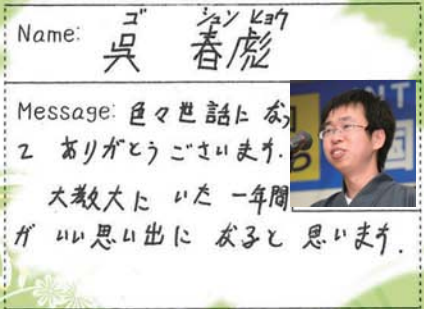 ゴ シュン ヒョウ
Name: 呉 春彪
Message: 色々世話になっ
て ありがとうございます.
大教大に いた 一年間
が いい思い出に なると 思います.
NT
国